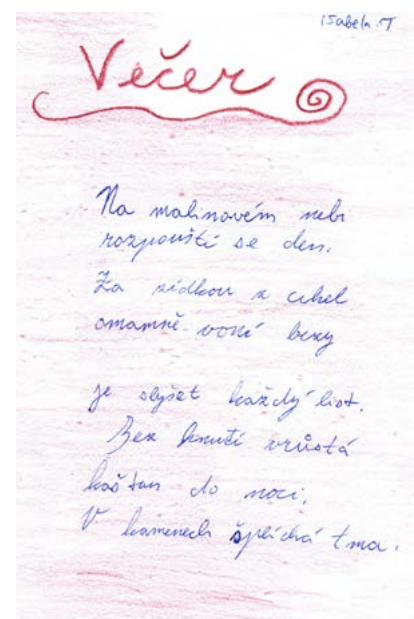 Isabela.T
Večer
Na malinovém nebi
rozpouští se den.
Za zídkou z cihel
omamně voní bezy
je slyšet každý list.
Bez hnutí vrůstá
kaštan do noci.
V kamenech šplíchá tma.